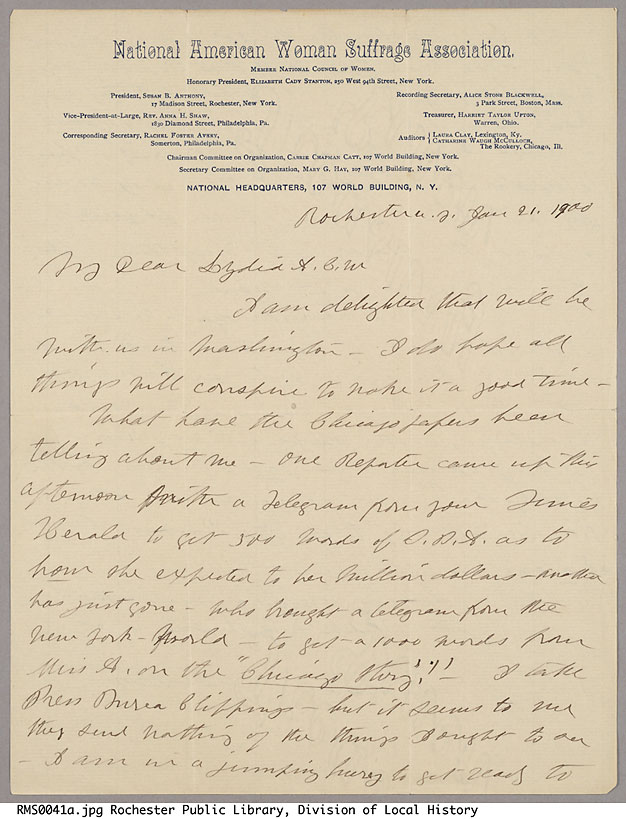 National American Woman Suffrage Association.
Member National Council of Women.
Honorary President, Elizabeth Cady Stanton, 250 West 94th Street, New York.
President, Susan B. Anthony,
17 Madison Street, Rochester, New York.
Vice-President-at-Large, Rev. Anna H. Shaw,
1830 Diamond Street, Philadelphia, Pa.
Corresponding Secretary, Rachel Foster Avery,
Somerton, Philadelphia, Pa.
Recording Secretary, Alice Stone Blackwell,
3 Park Street, Boston, Mass.
Treasurer, Harriet Taylor Upton,
Warren, Ohio.
Auditors { Laura Clay, Lexington, Ky.
Catharine Waugh McCulloch,
The Rookery, Chicago, Ill.
Chairman Committee on Organization, Carrie Chapman Catt, 107 World Building, New York.
Secretary Committee on Organization, Mary G. Hay, 107 World Building, New York.
NATIONAL HEADQUARTERS, 107 WORLD BUILDING, N. Y.
Rochester N. Y. Jan 21. 1900
My Dear Lydia A. C. W
I am delighted that will be
with us in Washington – I do hope all
things will conspire to make it a good time –
What have the Chicago papers been
telling about me – One Reporter came up this
afternoon with a Telegram from your Times
Herald to get 500 words of S. B. A. as to
how she expected to her Million dollars – another
has just gone – who brought a telegram from the
New York – World – to get a 1000 words from
Miss A. on the "Chicago Story"!! – I take
Press Burea Clippings – but it seems to me
they send nothing of the things I ought to see
– I am in a jumping hurry to get ready to
RMS0041a.jpg Rochester Public Library, Division of Local History